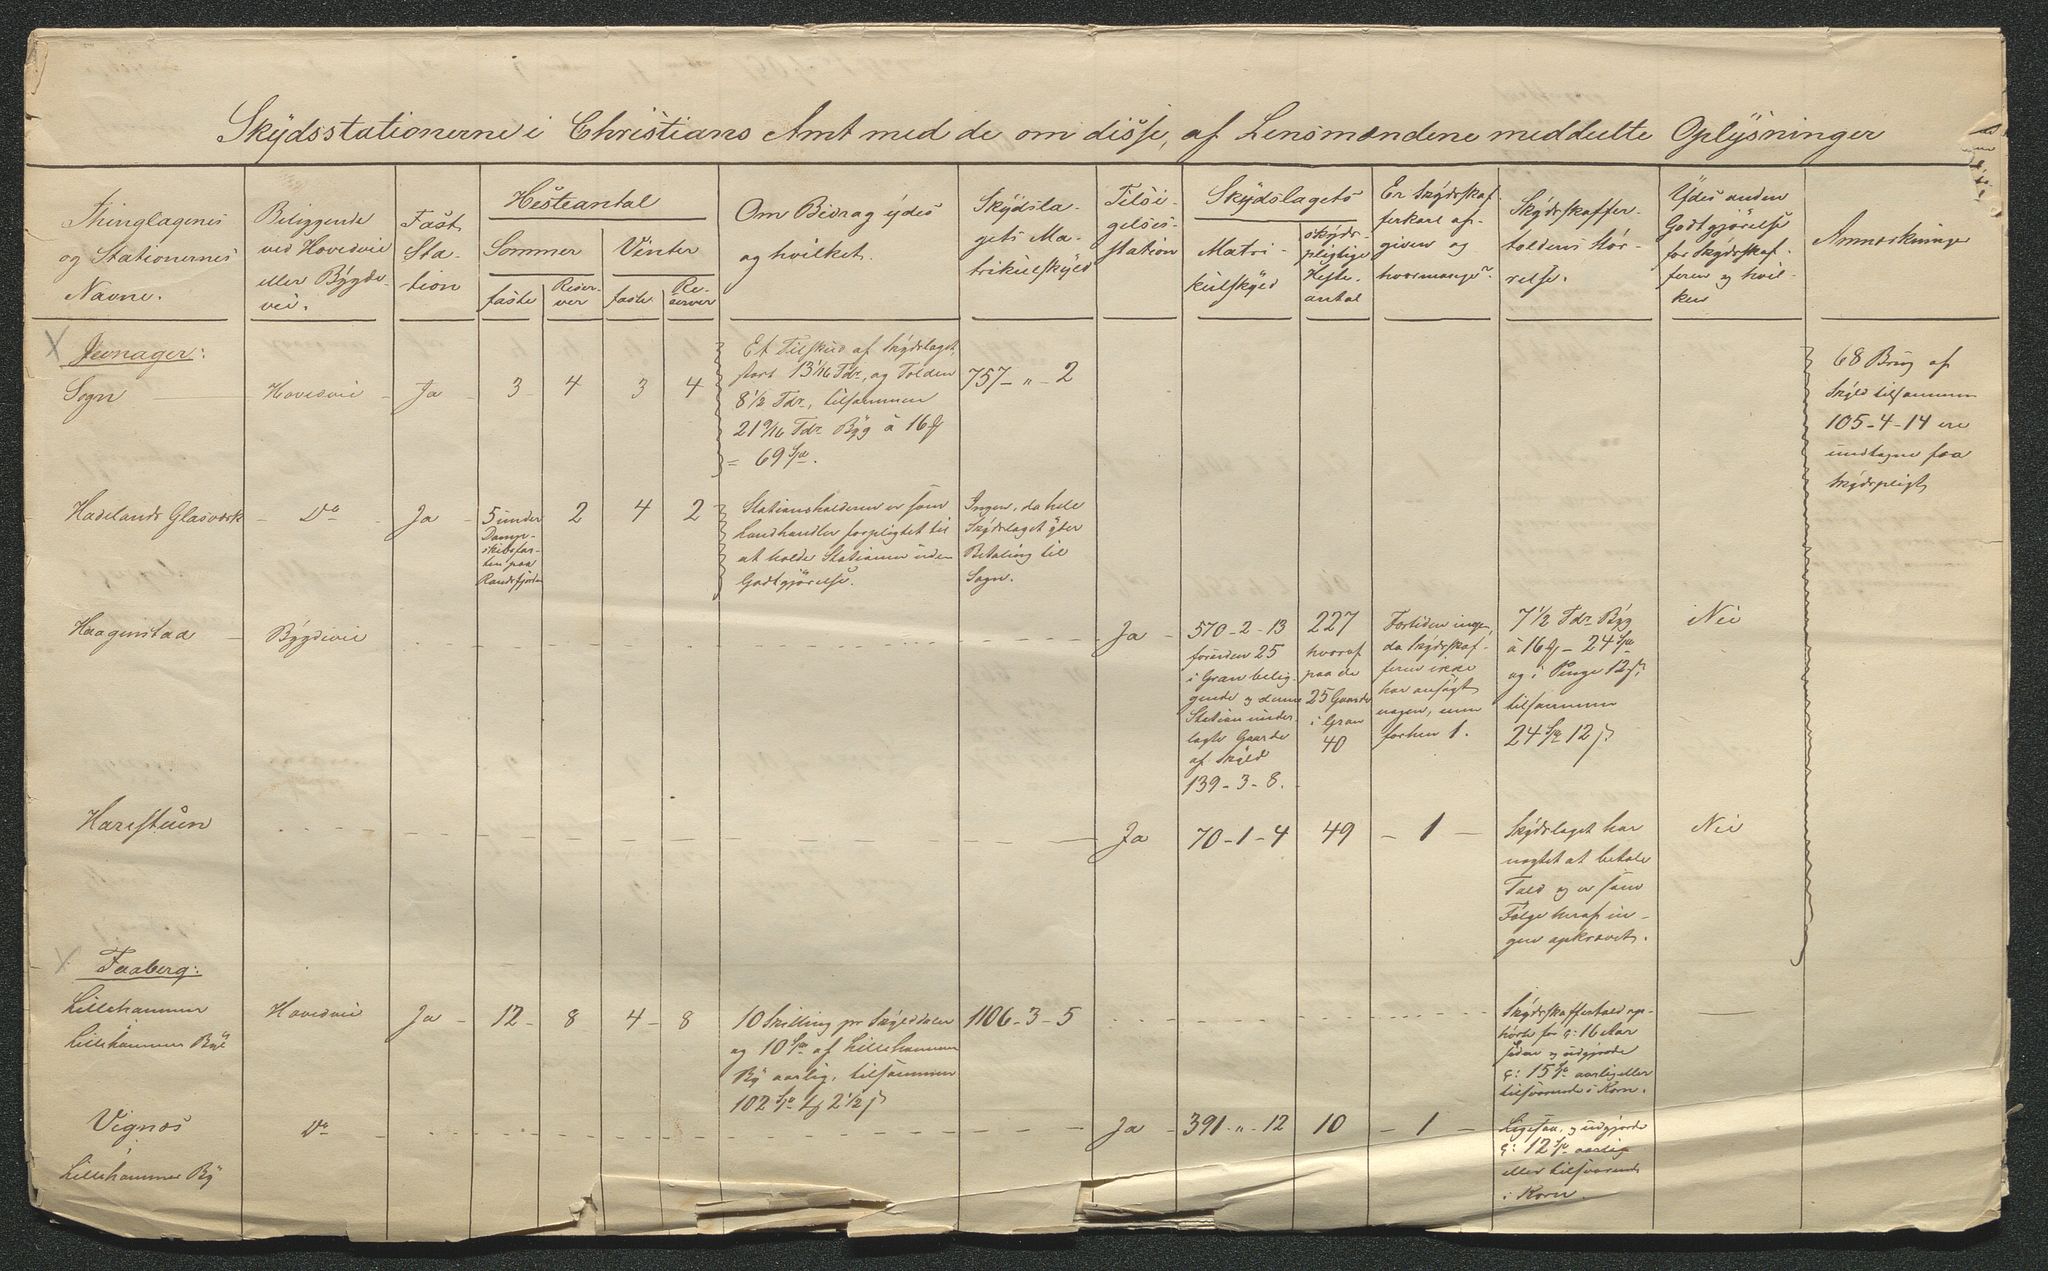 Skydsstationerne i Christians Amt med de om disse, af Lensmændene meddeelte Oplysninger
Thinglagenes
og Stationernes
Navne.
Beliggende
ved Hovedvei
eller Bygde-
vei.
Fast
Sta-
tion
Hesteantal
Sommer
Vinter
faste
Reser-
ver
faste
Re-
server
Om Bidrag ydes
og hvilket.
Skydsla-
gets Ma-
trikulskyld
Tilsi-
gelses-
station
Skydslagets
Matri-
kulskyld
skyds-
pligtige
Heste-
antal
Er Skydsskaf-
ferkarl af-
given og
hvormange?
Skydsskaffer-
toldens Stør-
relse.
Ydes anden
Godtgjörelse
for Skydsskaf-
feren og hvil-
ken
Anmærkninger
X Jevnager:
Sogn
Hovedvei
Ja
3
4
3
4
Et Tilskud af Skydslaget,
stort 13 1/16 Tdr, og Tolden
8 1/2 Tdr, tilsammen
21 9/16 Tdr Byg à 16
= 69 Spd.
757 - " - 2
68 Brug af
Skyld tilsammen
105-4-14 ere
undtagne fra
Skydspligt
Hadelands Glasværk
Do
Ja
5 under
Damp-
skibsfar-
ten paa
Randsfjorden
2
4
2
Stationsholderen er som
Landhandler forpligtet til
at holde Stationen uden
Godtgjörelse.
Ingen, da hele
Skydslaget yder
Betaling til
Sogn.
Haagenstad
Bygdevei
Ja
570-2-13
foruden 25
i Gran belig-
gende og denne
Station under-
lagte Gaarde
af Skyld
139-3-8.
227
hvoraf
paa de
25 Gaarde
i Gran
40
Fortiden ingen,
da Skydsskaf-
feren ikke
har ansögt
nogen, men
forhen 1.
7 1/2 Tdr Byg
à 16 - 24 Spd
og i Penge 12 s.
tilsammen
24 Spd 12 s.
Nei
Harestuen
Ja
70-1-4
49
1
Skydslaget har
negtet at betale
Told og er som
Fölge heraf in-
gen opkrævet.
Nei
X Faaberg:
Lillehammer
i
Lillehammer Bye
Hovedvei
Ja
12
8
4
8
10 Skilling pr Skylddaler
og 10 Spd af Lillehammer
By aarlig, tilsammen
102 Spd 2 1/2 s
1106-3-5
Skydsskaffertold op-
hörte for c: 16 Aar
siden og udgjorde
c: 15 Spd aarlig eller
tilsvarende i Korn.
Vignæs
i
Lillehammer By
Do
Ja
391 - " - 12
10
1
Ligesaa, og udgjorde
c: 12 Spd aarlig
eller tilsvarende
i Korn.